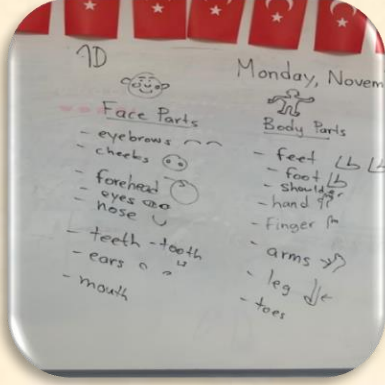 1D
Monday, Novem
Face Parts
- eyebrows
- cheeks
- forehead
- eyes
- nose
- teeth - tooth
- ears
- mouth
Body Parts
- feet
- foot
- shoulder
- hand
- finger
- arms
- leg
- toes